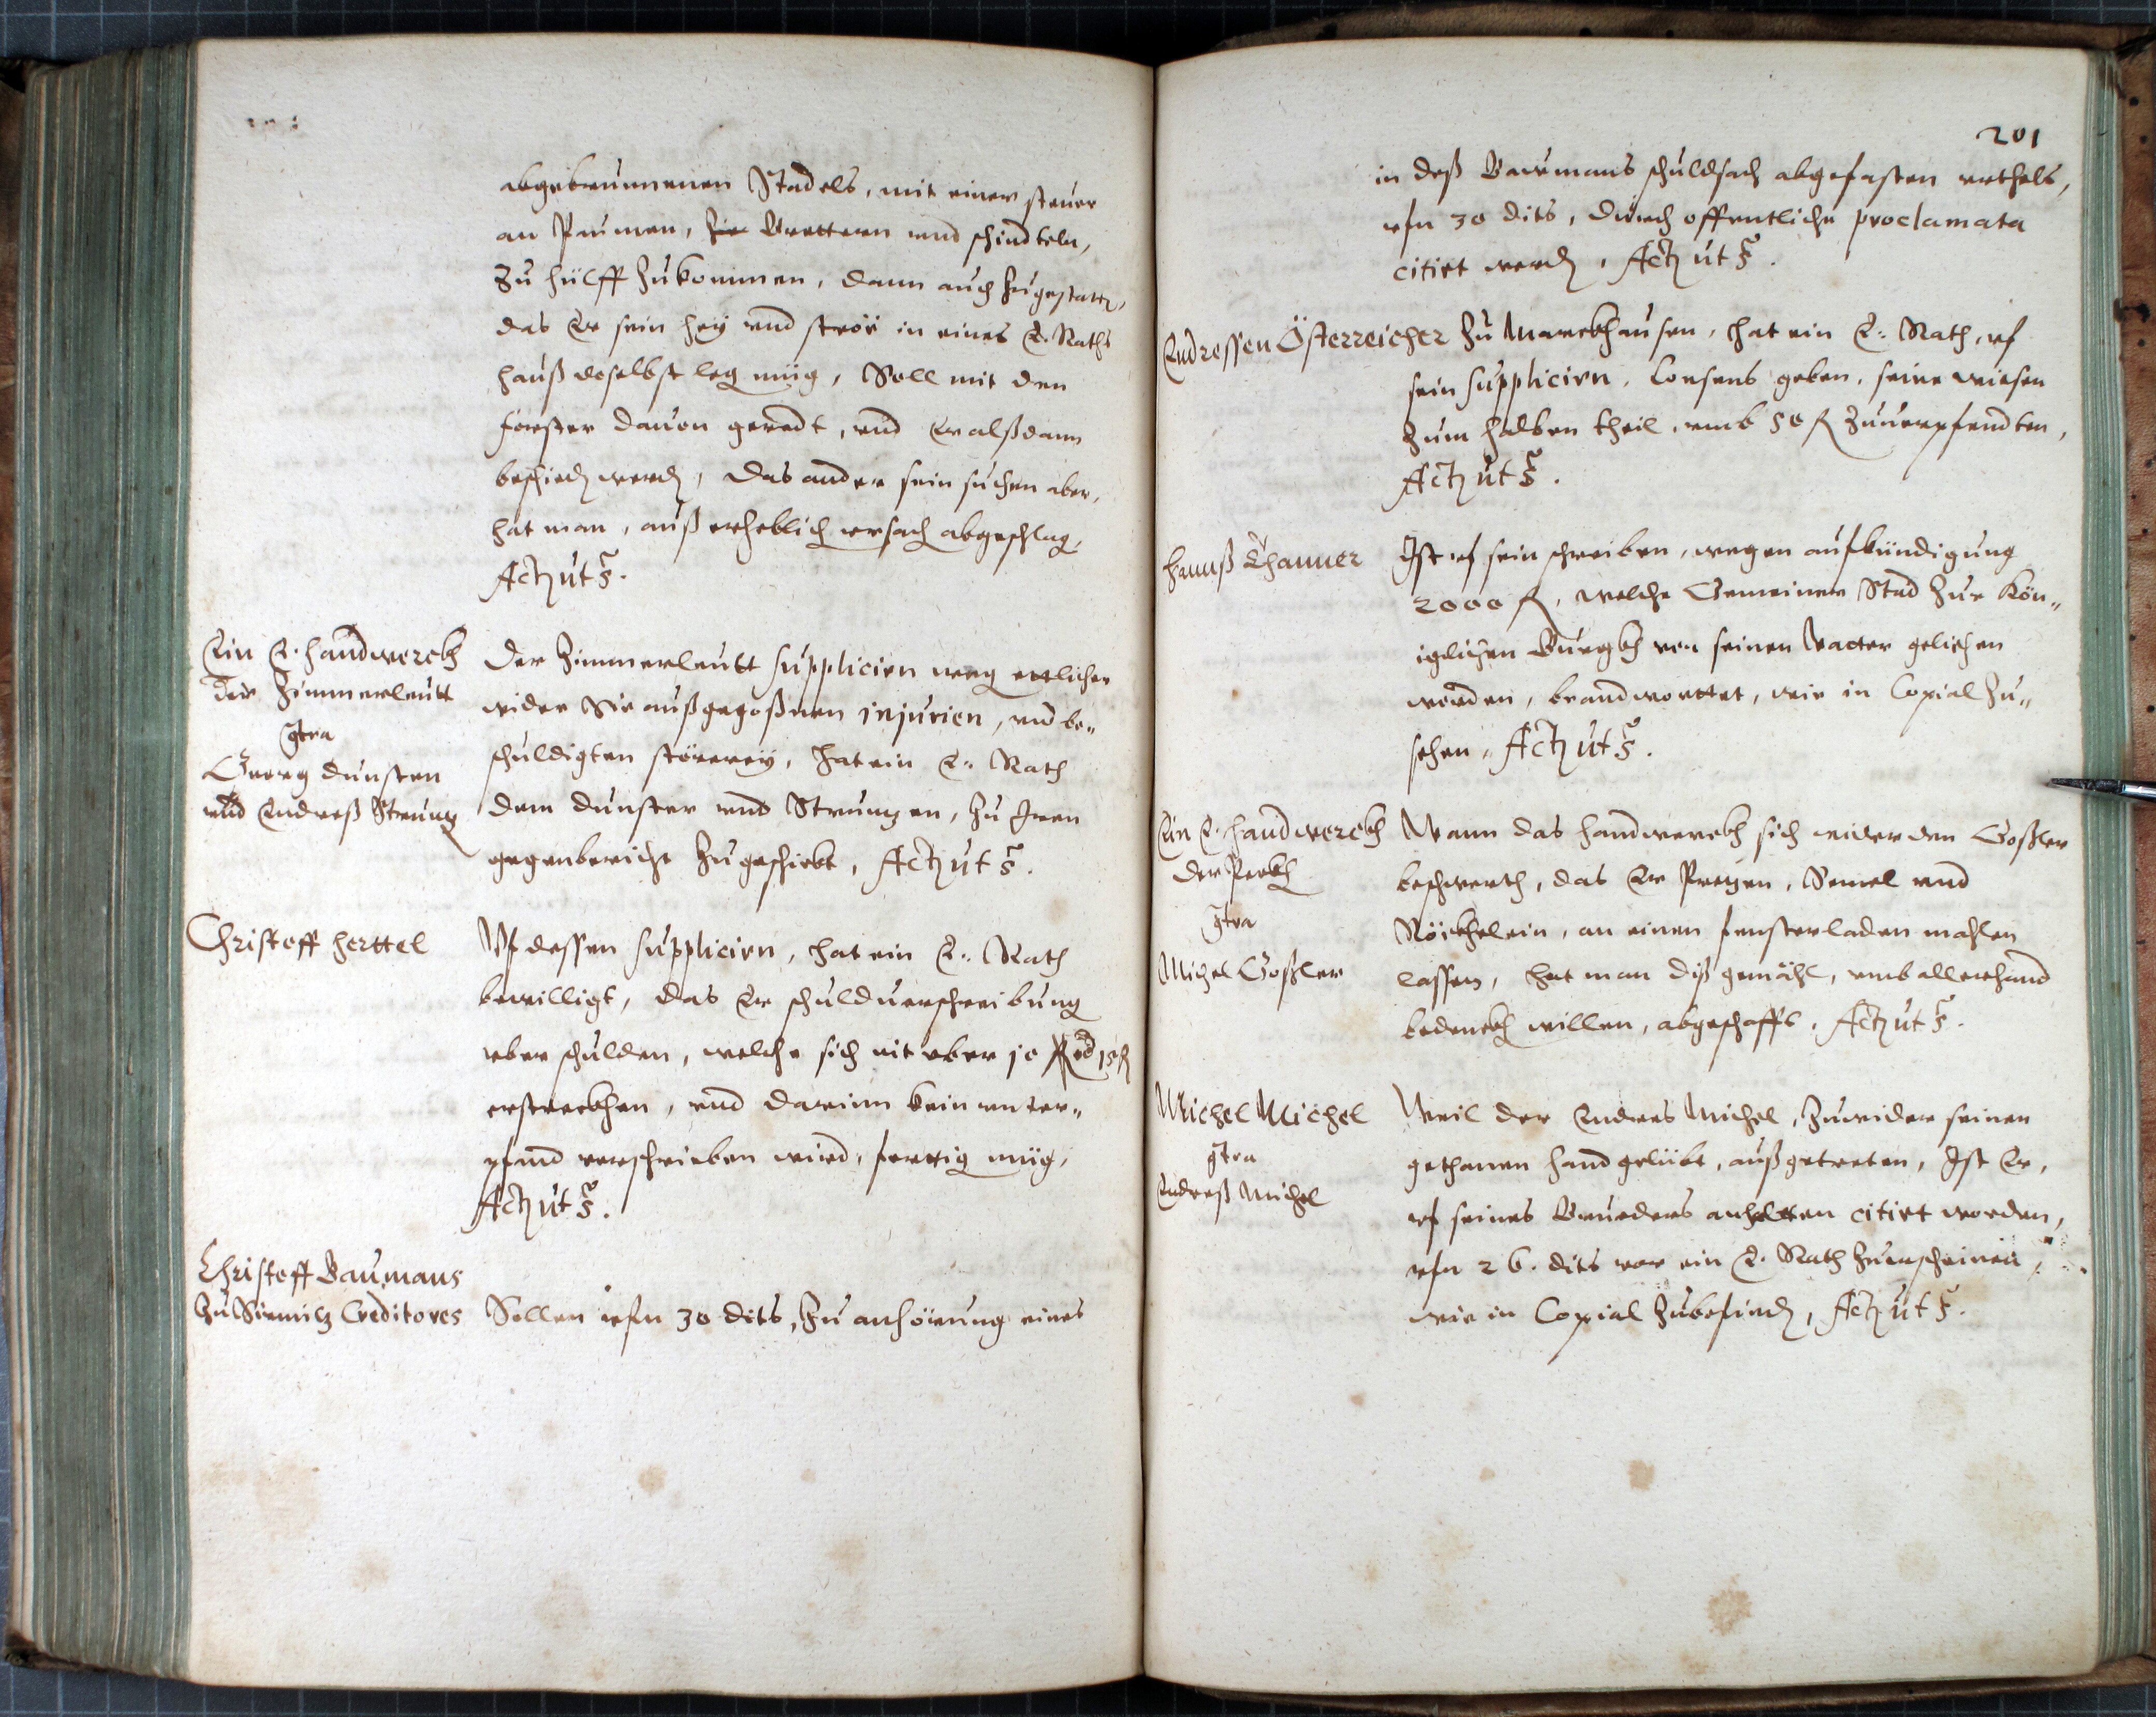 abgebrunnenen Stadels, mit einer steuer
an Paumen, Brettern und schindteln,
zu hülff zukommen, dann auch zugestatten,
das Er sein hey und ströe in eines E. Raths
hauß doselbst leg müg, Soll mit den
forster dauon geredt, und Er alßdann
beschied werd, das ander sein suchen aber,
hat man, auß erheblich ursach abgeschlag,
Act ut s.
Ein E. handwerckh
der Zimmerleutt
gtra
Georg dunsten
und Endreß Strunz
Der Zimmerleutt supplicirn weg ettlicher
wider Sie außgegoßnen injurien, und be„
schuldigten störerey, hat ein E. Rath
dem dunster und Strunzen, zu Iren
gegenbericht zugeschickt, Act ut s.
Christoff herttel
Uf dessen supplicirn, hat ein E. Rath
bewilligt, das Er schulduerschreibung
uber schulden, welche sich nit uber 10 fl
erstreckhen, und darinn kein unter„
pfand verschrieben wird, ferttig müg,
Act ut s.
Christoff Baumans
zu Creditores
Sollen ufn 30 dits, zu anhörung eines
201
in deß Baumans schuldsach abgefasten urthels,
ufn 30 dits, durch offentliche proclamata
citirt werd, Act ut s.
Endressen Österreicher zu Marckhausen, hat ein E. Rath, uf
sein supplicirn, Consens geben, seine wiesen
zum halben theil, umb 50 fl zuuerpfendten,
Act ut s.
Hannß Thanner
Ist uf sein schreiben, wegen aufkündigung
2000 fl, welche Gemeiner Stad zur Kön„
iglichen Burgkh von seinen Vatter geliehen
worden, beandworttet, wie in Copial zu„
sehen, Act ut s.
Ein E. handwerckh
der Peckh
gtra
Michel Goßler
Wann das handwerckh sich wider den Goßler
beschwerth, das Er Pretzen, Semel und
Röckhelein, an einen fensterladen mahlen
lassen, hat man diß gemähl, umb allerhand
bedenckh willen, abgeschafft, Act ut s.
Michel Michel
gtra
Endreß Michel
Weil der Endres Michel, zuwider seiner
gethanen handgelübt, außgetreten, Ist Er,
uf seines Brueders anhalten citirt worden,
ufn 26. dits vor ein E. Rath zuerscheinen,
wie in Copial zubefind, Act ut s.